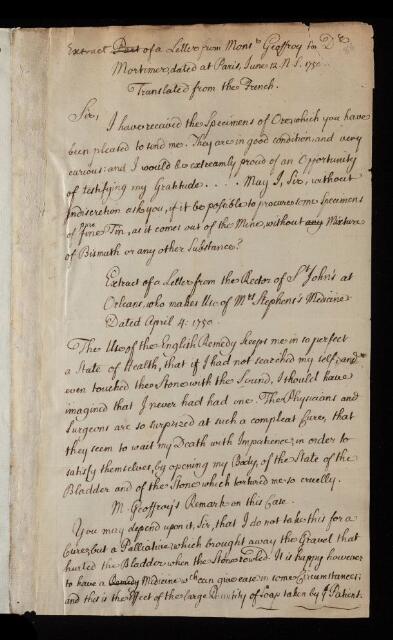 Extract Part of a Letter from Monsr Geoffroy to Dr
Mortimer, dated at Paris, June 12. N.S. 1750.
Translated from the French.
Sir,
I have received the Specimens of Ore which you have
been pleased to send me. They are in good condition and very
curious: and I would be extreamly proud of an Opportunity
of testifying my Gratitude. . . . May I, Sir, without
Indiscretion ask you, if it be possible to procure some Specimens
of fine Tin, as it comes out of the Mine, without any Mixture
of Bismuth or any other Substance?
Extract of a Letter from the Rector of St John's at
Orleans, who makes Use of Mrs Stephens's Medicine
Dated April 4. 1750.
The Use of the English Remedy keeps me in so perfect
a State of Health, that if I had not searched my self, and
even touched the Stone with the Sound, I should have
imagined that I never had had one. The Physicians and
Surgeons are so surprized at such a compleat Cure, that
they seem to wait my Death with Impatience, in order to
satisfy themselves, by opening my Body, of the State of the
Bladder and of the Stone which tortured me so cruelly.
M. Geoffroy's Remark on this Case.
You may depend upon it, Sir, that I do not take this for a
Cure, but a Palliative which brought away the Gravel that
hurted the Bladder when the Stone rowled. It is happy however
to have a Remedy Medicine wch can give ease in some Circumstances;
and this is the Effect of the large Quantity of Soap taken by ye Patient.